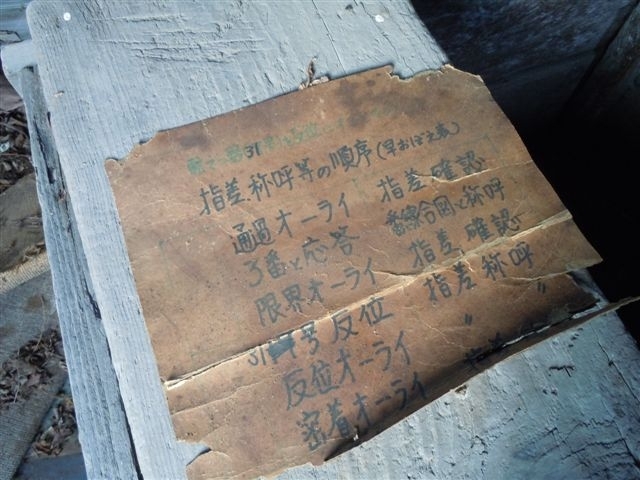 31
指差称呼等の順序(早おぼえ表)
通過オーライ 指差確認
3番と応答 番線合図と称呼
限界オーライ 指差確認
31 号反位 指差称呼
反位オーライ 〃 〃
密着オーライ 指差